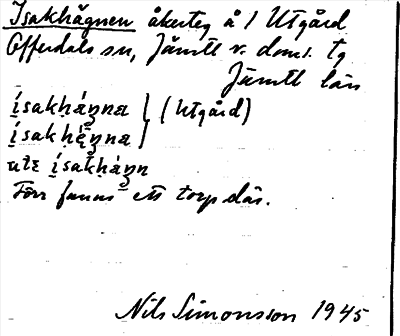 Isakhägnen åkerteg å / Utgård
Offerdals sn, Jämtl. v. doms. tg
Jämtl län
ísakḥáŋna } (Utgård)
ísakḥéŋna
utε ísakḥáŋn
Förr fanns ett torp där.
Nils Simonsson 1945